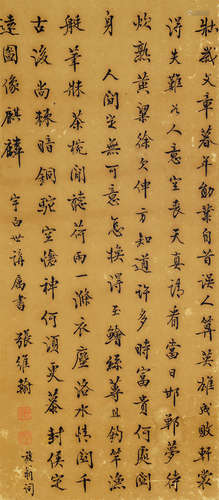 壯歲文章暮年勳業自昔誤人算英雄成敗軒裳
得失難如人意空喪天真請看當日邯鄲夢待
炊熟黃粱徐欠伸方知道許多時富貴何處關
身 人間定無可意怎換得玉鱠絲蓴且釣竿漁
艇筆牀茶椀閒聽荷雨一滌衣塵洛水情關千
古後尚棘暗銅駝空愴神何須更慕封侯定
遠圖像麒麟 宇白世講屬書 張維翰
放翁詞